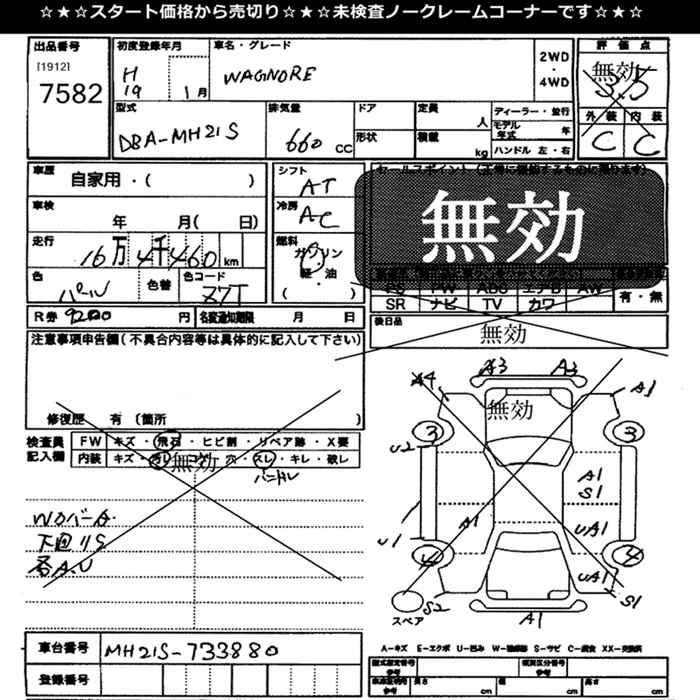 ☆★☆スタート価格から売切り☆★☆未検査ノークレームコーナーです☆★☆
出品番号 初度登録年月 車名・グレード 2WD・4WD 評価点
[1912]
7582
H19 1月
WAGNORE
無効
3.5
型式 排気量 ドア 定員 人 ディーラー・並行 外装 内装
DBA-MH21S 660 CC 形状 積載 kg モデル年式 年 C C
ハンドル 左・右
車歴 自家用・( ) シフト AT セールスポイント
車検 年 月( 日) 冷房 AC
無効
走行 16万4千460km 燃料 ガソリン・軽・油 ( )
色 パール 色替 色コード Z7T
PS PW ABS エアB AW 有・無
SR ナビ TV カワ
R券 9200 円 名変通知期限 月 日 後日品
無効
注意事項申告欄(不具合内容等は具体的に記入して下さい)
修復歴 有 (箇所 )
A3 A3
A4 A1
無効
3 3
検査員記入欄 FW キズ・飛石・ヒビ割・リペア跡・X要
内装 キズ・汚レ・コゲ・穴・スレ・キレ・破レ
無効
バードレ
U2
A1
S1
A1 UA1
U1
4 4
UA1
S2 S1
スペア
A1
WOバーA
下回リS
各A.U
車台番号 MH21S-733880
A-キズ E-エクボ U-凹み W-補修跡 S-サビ C-腐食 XX-交換済
登録番号
型式指定番号 参考 類別区分番号 参考
車庫証明用 参考 長さ cm 幅 cm 高さ cm